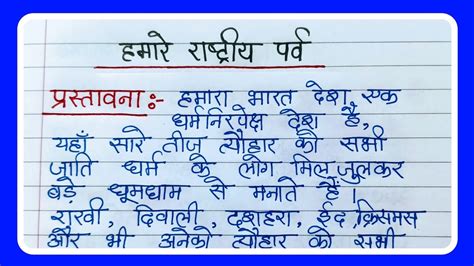 हमारे राष्ट्रीय पर्व
प्रस्तावना :- हमारा भारत देश एक
धर्मनिरपेक्ष देश है,
यहाँ सारे तीज त्यौहार को सभी
जाति धर्म के लोग मिलजुलकर
बड़े धूमधाम से मनाते हैं।
राखी, दिवाली, दशहरा, ईद, क्रिसमस
और भी अनेको त्यौहार को सभी